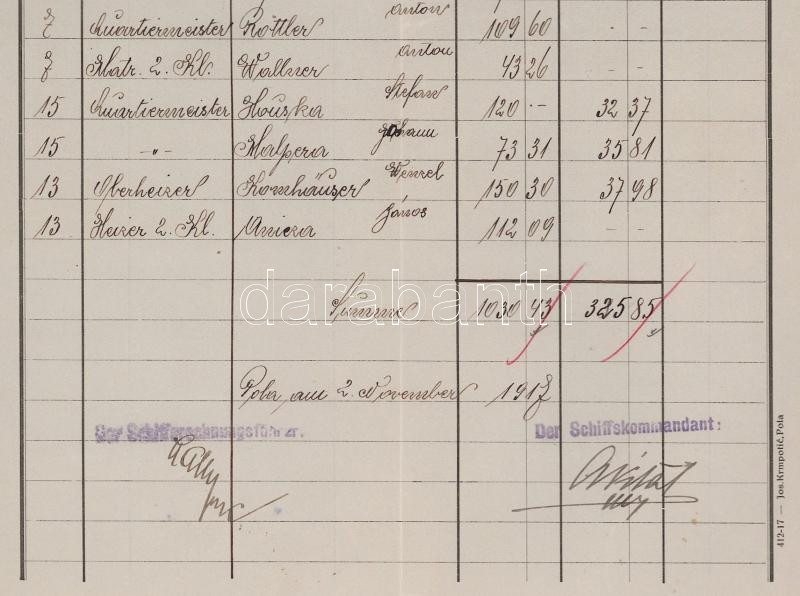 7 Quartiermeister Rottler Anton 109 60 - -
7 Matr. 2. Kl. Wallner Anton 43 26 - -
15 Quartiermeister Houska Stefan 120 - - 32 37
15 -"- Malpera Johann 73 31 35 81
13 Oberheizer Kornhäuser Wenzel 150 30 37 98
13 Heizer 2. Kl. János 112 09 - -
Summe 1030 43 325 85
darabanth
Pola, am 2. November 1917
Der Schiffsrechnungsführer. Der Schiffskommandant:
412-17 — Jos. Krmpotić, Pola